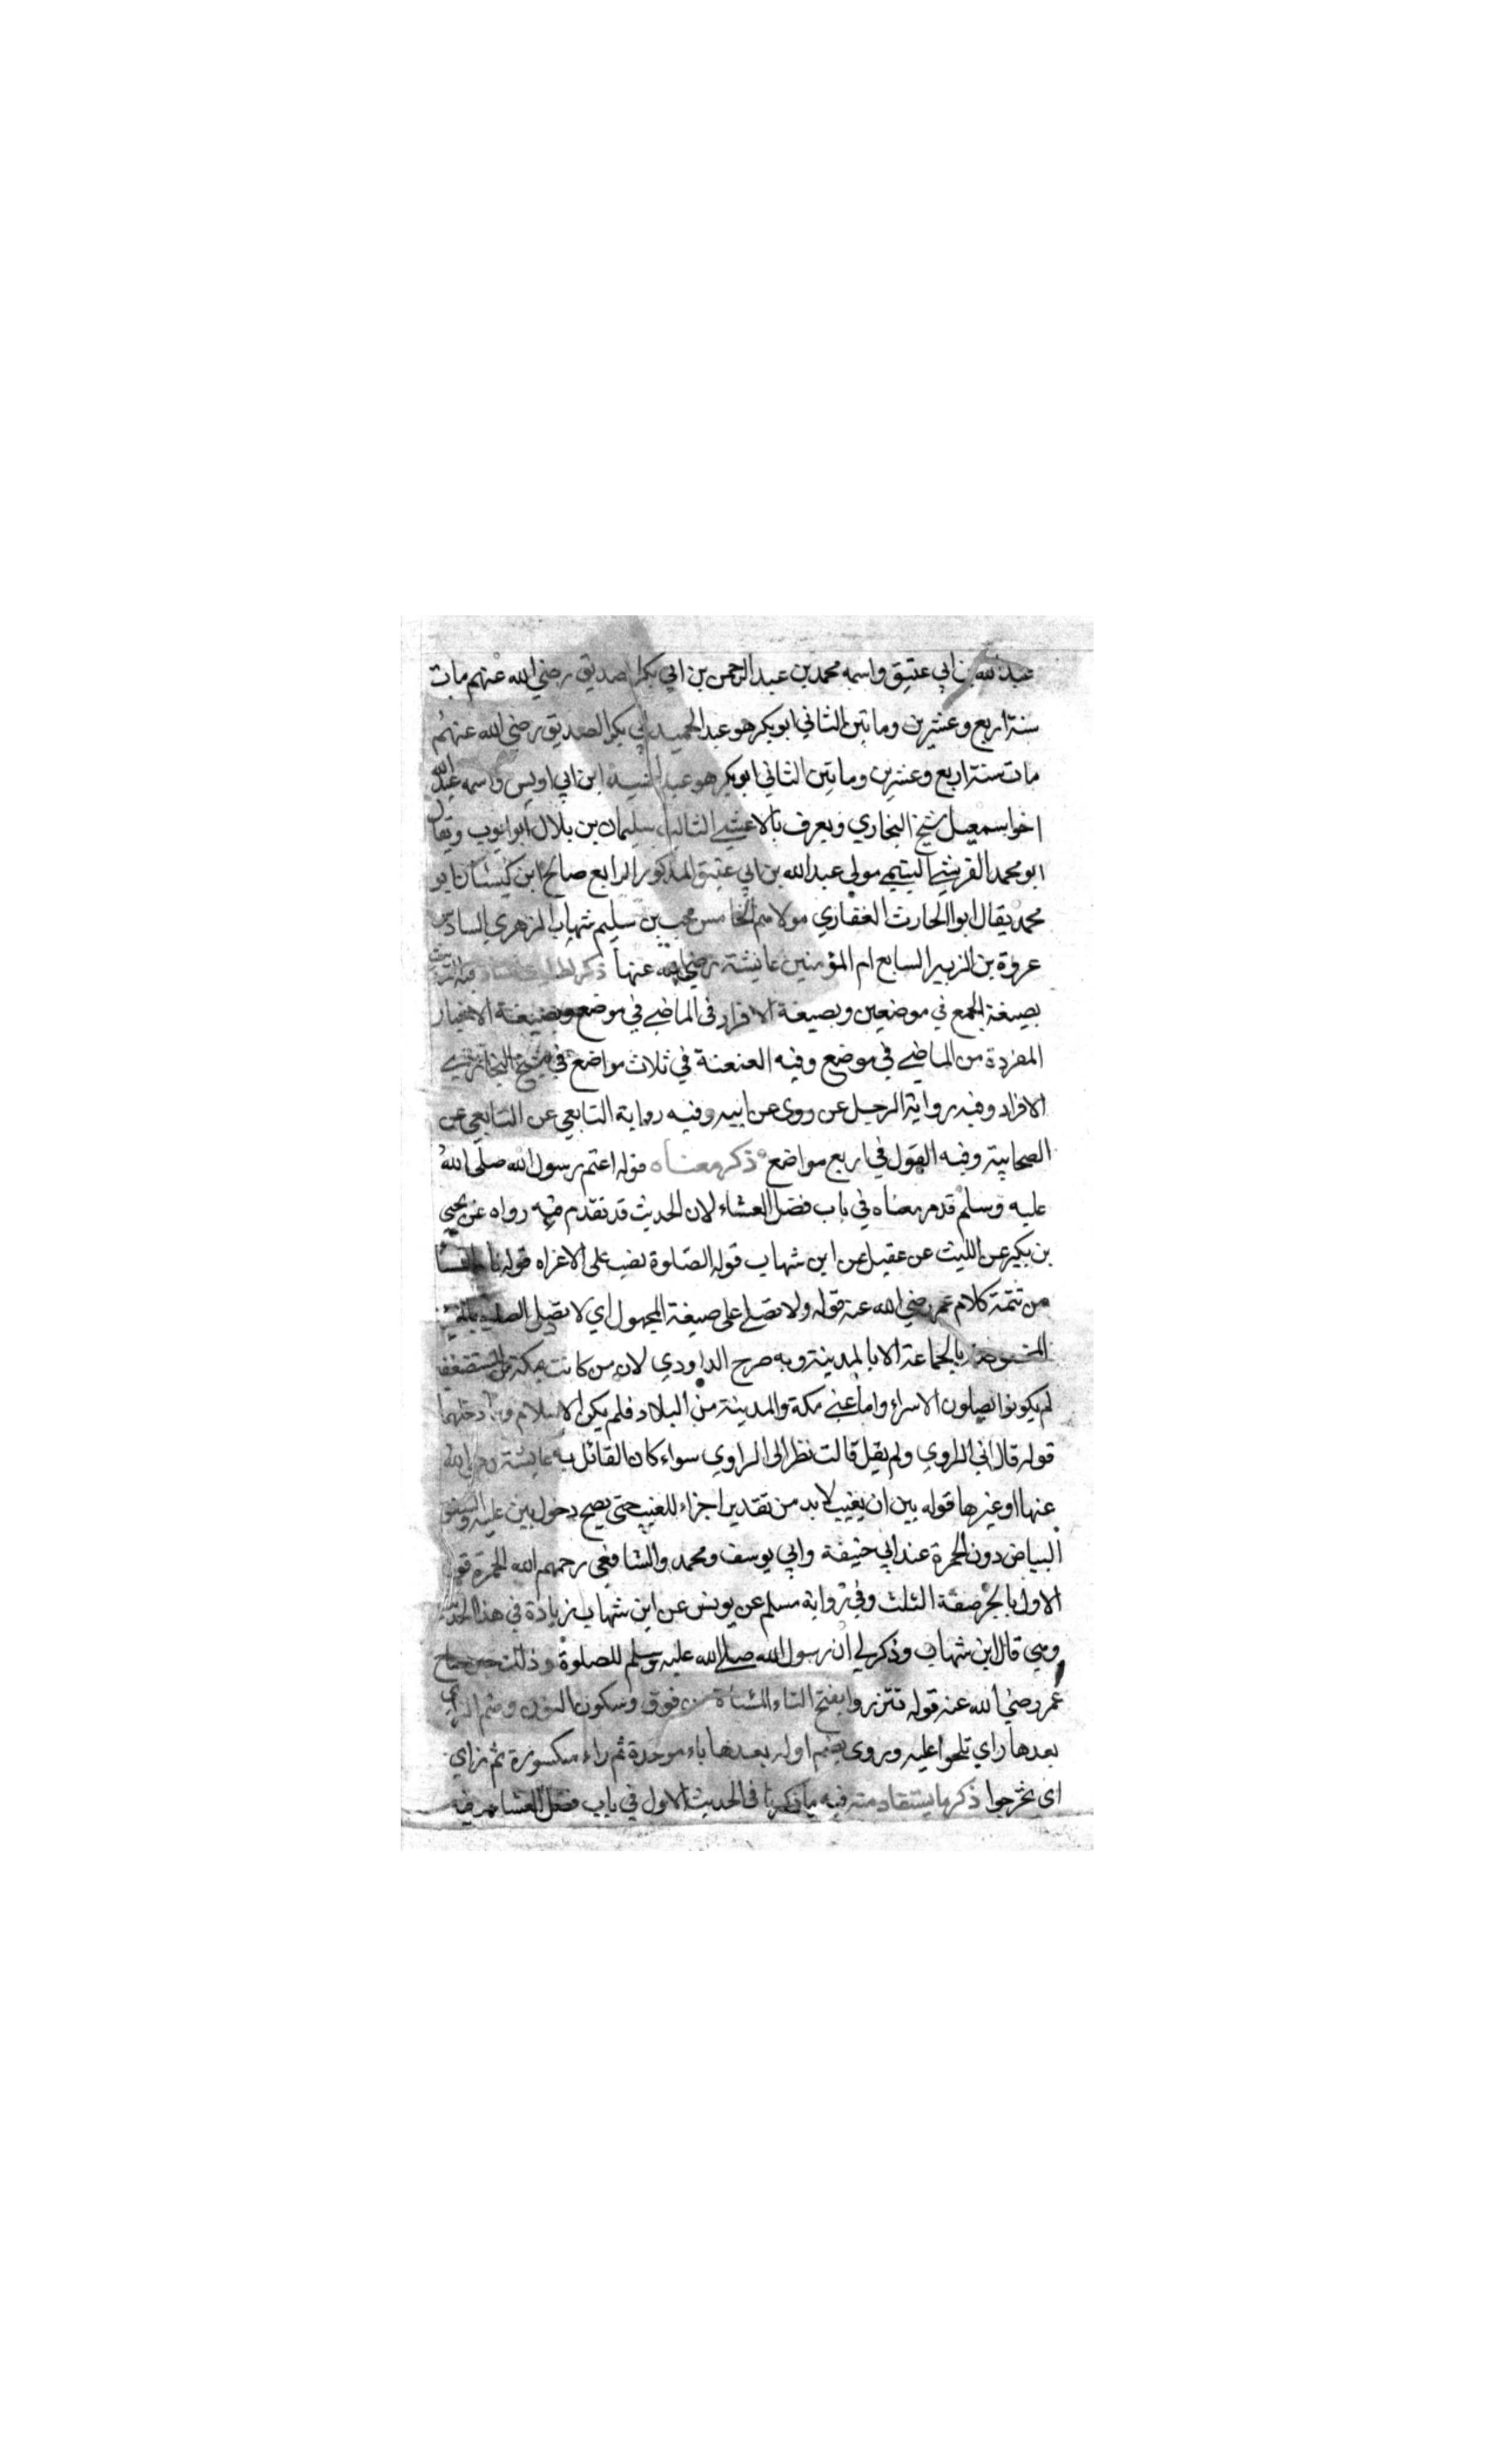 عبد الله بن ابي عتيق واسمه محمد بن عبد الرحمن بن ابي بكر الصديق رضي الله عنهم مات
سنة اربع وعشرين وماتين الثاني ابو بكر هو عبد الحميد ابي بكر الصديق رضي الله عنهم
مات سنة اربع وعشرين وماتين الثاني ابو بكر هو عبد ابن ابي اويس واسمه عبد الله
اخو اسمعيل شيخ البخاري ويعرف بالاعشي الثالث سليمان بن بلال ابو ايوب ويقال
ابو محمد القرشي التيمي مولى عبد الله بن ابي عتيق المذكور الرابع صالح ابن كيسان ابو
محمد يقال ابو الحارث الغفاري مولاهم الخامس محمد بن سليم شهاب الزهري السادس
عروة بن الزبير السابع ام المؤمنين عايشة رضي الله عنها ذكر لطايف اسناده فيه التحديث
بصيغة الجمع في موضعين وبصيغة الافراد في الماضي في موضع وبصيغة الاخبار
المفردة من الماضي في موضع وفيه العنعنة في ثلاث مواضع في شيخ البخاري
الافراد وفيه رواية الرجل عن روى عن ابيه وفيه رواية التابعي عن التابعي عن
الصحابية وفيه القول في اربع مواضع ذكر معناه قوله اعتم رسول الله صلى الله
عليه وسلم قد مر معناه في باب فضل العشاء لان الحديث قد تقدم فيه رواه عن يحيى
بن بكير عن الليث عن عقيل عن ابن شهاب قوله الصلوة نصب على الاغراء قوله نام النسا
من تتمة كلام عمر رضي الله عنه قوله ولا تصلى على صيغة المجهول اي لا تصلى الصلوة بالهيئة
المخصوصة بالجماعة الا بالمدينة وبه صرح الداودي لان من كانت بمكة من المستضعفين
لم يكونوا يصلون الا سراء واما غني مكة والمدينة من البلاد فلم يكن الاسلام دخلها
قوله قال اني الراوي ولم يقل قالت نظر الى الراوي سواء كان القائل به عايشة رضي الله
عنها او غيرها قوله بين ان يغيب لا بد من تقدير اجزاء للغيب حتى يصح دخول بين عليه والشفق
البياض دون الحمرة عند ابي حنيفة وابي يوسف ومحمد والشافعي رحمهم الله الحمرة قوله
الاول بالجر صفة الثلث وفي رواية مسلم عن يونس عن ابن شهاب زيادة في هذا الحديث
وهي قال ابن شهاب وذكر لي ان رسول الله صلى الله عليه وسلم للصلوة وذلك حين صاح
عمر رضي الله عنه قوله تنزروا بفتح التاء المثناة من فوق وسكون النون وضم الزاي
بعدها راي تلحوا عليه وروى بضم اوله بعدها باء موحدة ثم راء مكسورة ثم زاي
اي تخرجوا ذكر ما يستفاد منه فيه ما ذكرنا في الحديث الاول في باب فضل العشاء وفيه